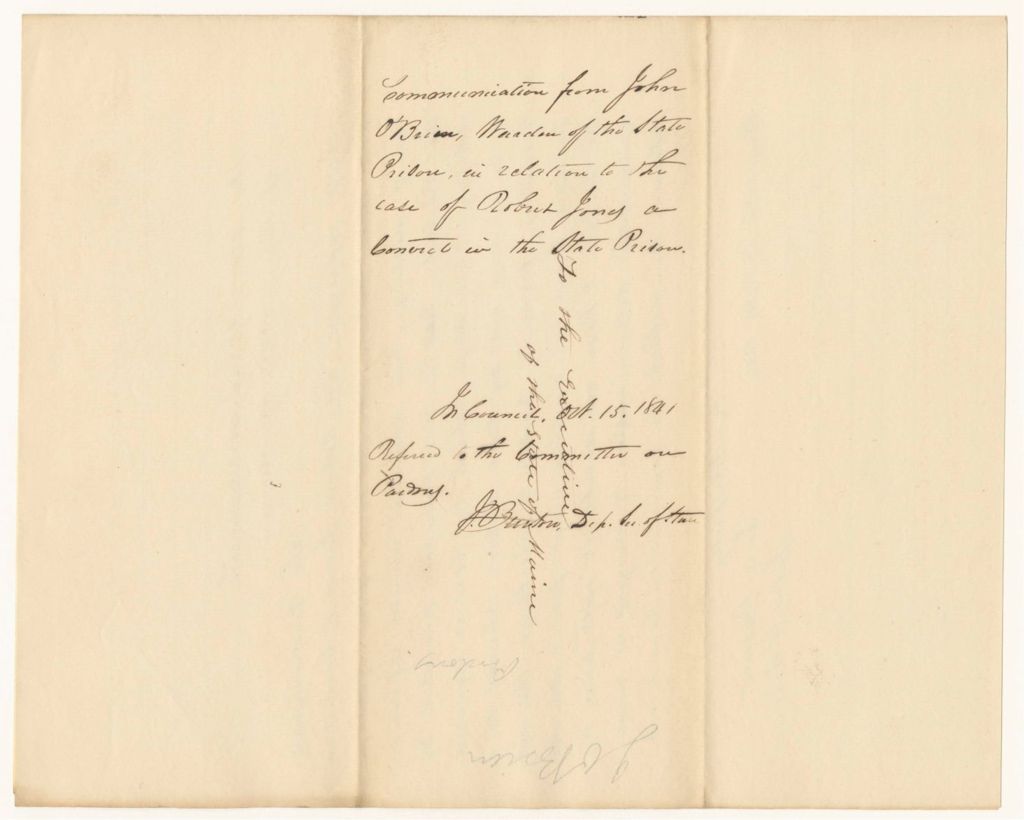 Communication from John
O'Brien, Warden of the State
Prison, in relation to the
case of Robert Jones a
Convict in the State Prison.
To the Executive
of the State of Maine
In Council, Oct. 15. 1841
Referred to the Committee on
Pardons.
J. Burton, Dep. Sec of State
Pardons
J OBrien